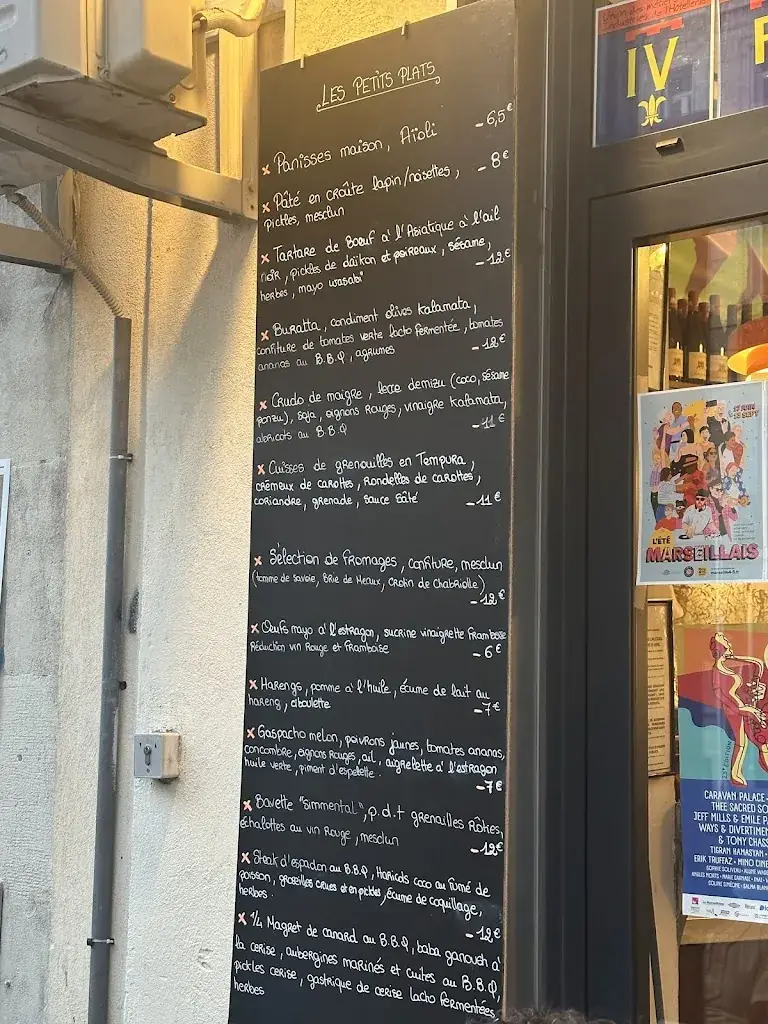 LES PETITS PLATS
x Panisses maison, Aïoli -6,5€
x Pâté en croûte lapin/noisettes, -8€
pickles, mesclun
x Tartare de Boeuf à l'Asiatique à l'ail
noir, pickles de daïkon et poireaux, sésame,
herbes, mayo wasabi" -12€
x Buratta, condiment olives Kalamata,
confiture de tomates verte lacto fermentée, tomates
ananas au B.B.Q, agrumes -12€
x Crudo de maigre, leche demizu (coco, sésame
ponzu), soja, oignons Rouges, vinaigre Kalamata,
abricots au B.B.Q -11€
x Cuisses de grenouilles en Tempura,
crémeux de carottes, Rondelles de carottes,
coriandre, grenade, sauce Saté -11€
x Sélection de fromages, confiture, mesclun
(tomme de Savoie, Brie de Meaux, Crotin de Chabriolle)
-12€
x Oeufs mayo à l'estragon, sucrine vinaigrette Framboise
Réduction vin Rouge et framboise -6€
x Harengs, pomme à l'huile, écume de lait au
hareng, ciboulette -7€
x Gaspacho melon, poivrons jaunes, tomates ananas,
concombre, oignons Rouges, ail, aigrelette à l'estragon
huile verte, piment d'espelette. -7€
x Bavette "simmental", p.d.t grenailles Rôties,
échalottes au vin Rouge, mesclun -12€
x Steak d'espadon au B.B.Q, Haricots coco au fumé de
poisson, groseilles crues et en pickles, écume de coquillage,
herbes -12€
x 1/4 Magret de canard au B.B.Q, baba ganoush à
la cerise, aubergines marinés et cuites au B.B.Q,
pickles cerise, gastrique de cerise lacto fermentées,
herbes
IV
17 JUIN
L'ÉTÉ
MARSEILLAIS
23e ÉDITION
CARAVAN PALACE
THEE SACRED SO
JEFF MILLS & EMILE P
WAYS & DIVERTIMEN
& TONY CHASS
TIGRAN HAMASYAN
ERIK TRUFFAZ • MINO CINE